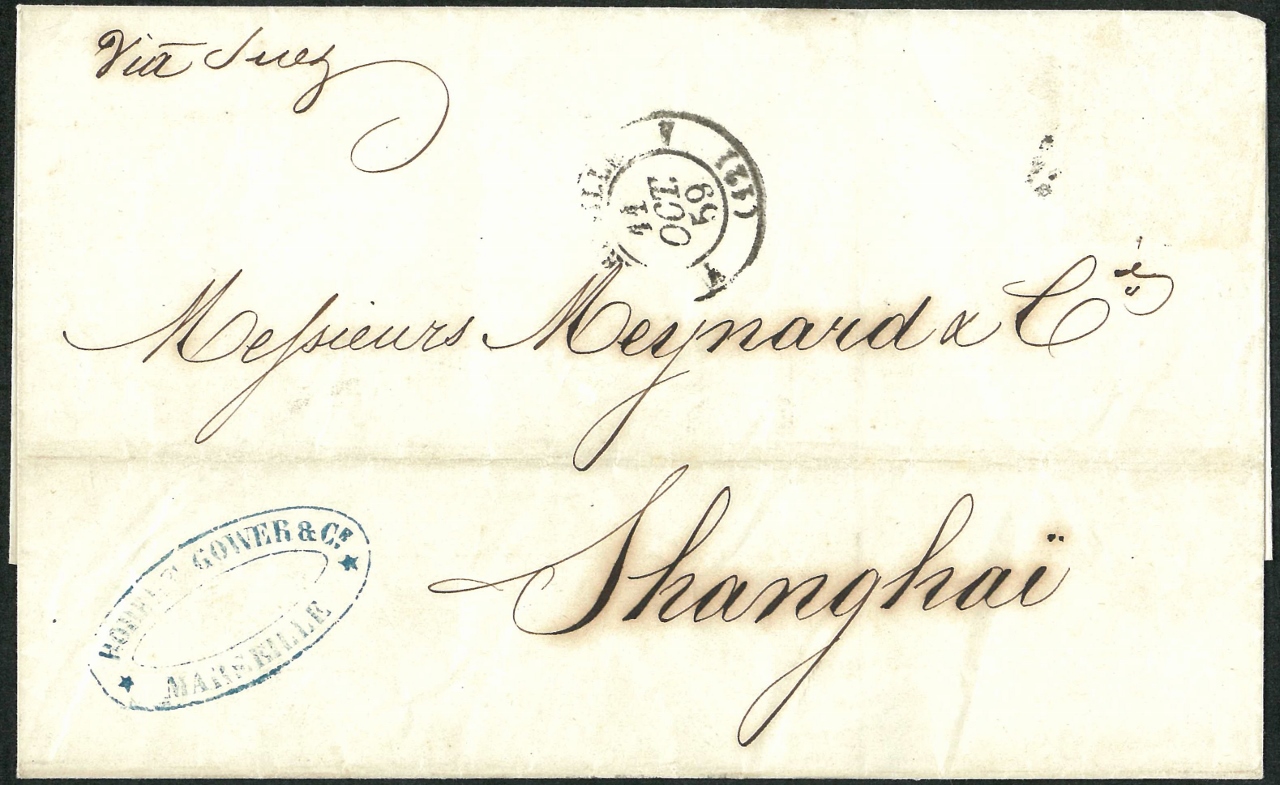 Via Suez
A (12)
11
OCT.
59
Messieurs Meynard & Cie
Shanghaï
ROBERT GOWER & Cᴱ
MARSEILLE